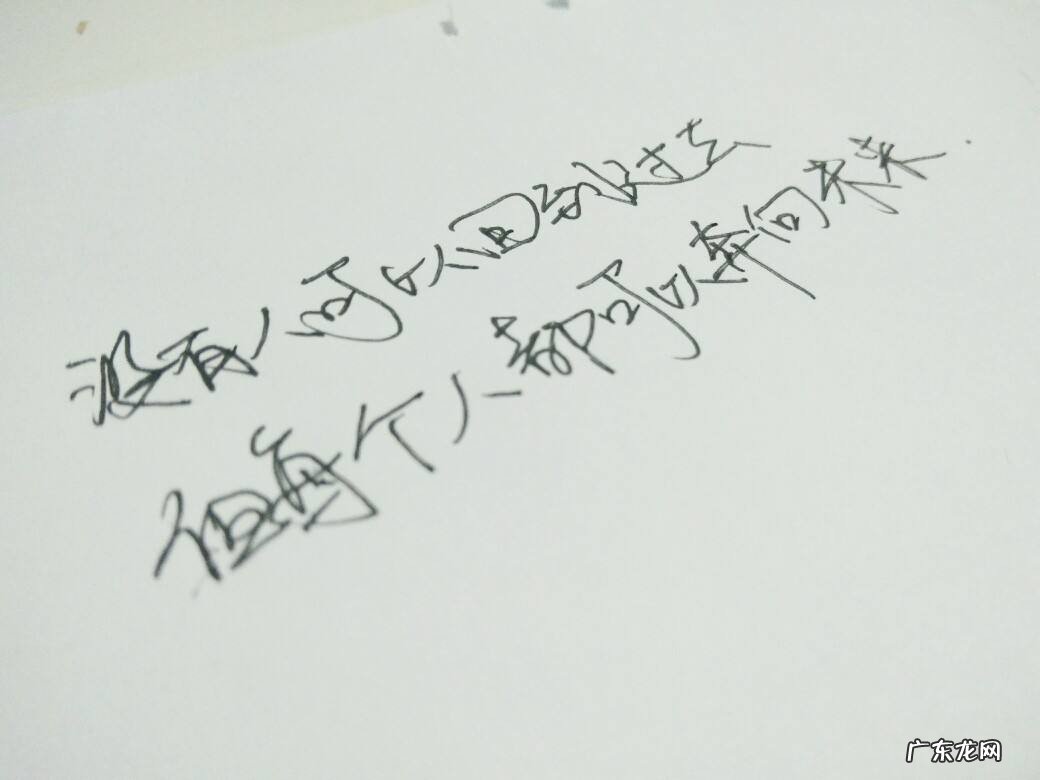 没有人可以回到过去
但每个人都可以奔向未来.
广东龙网